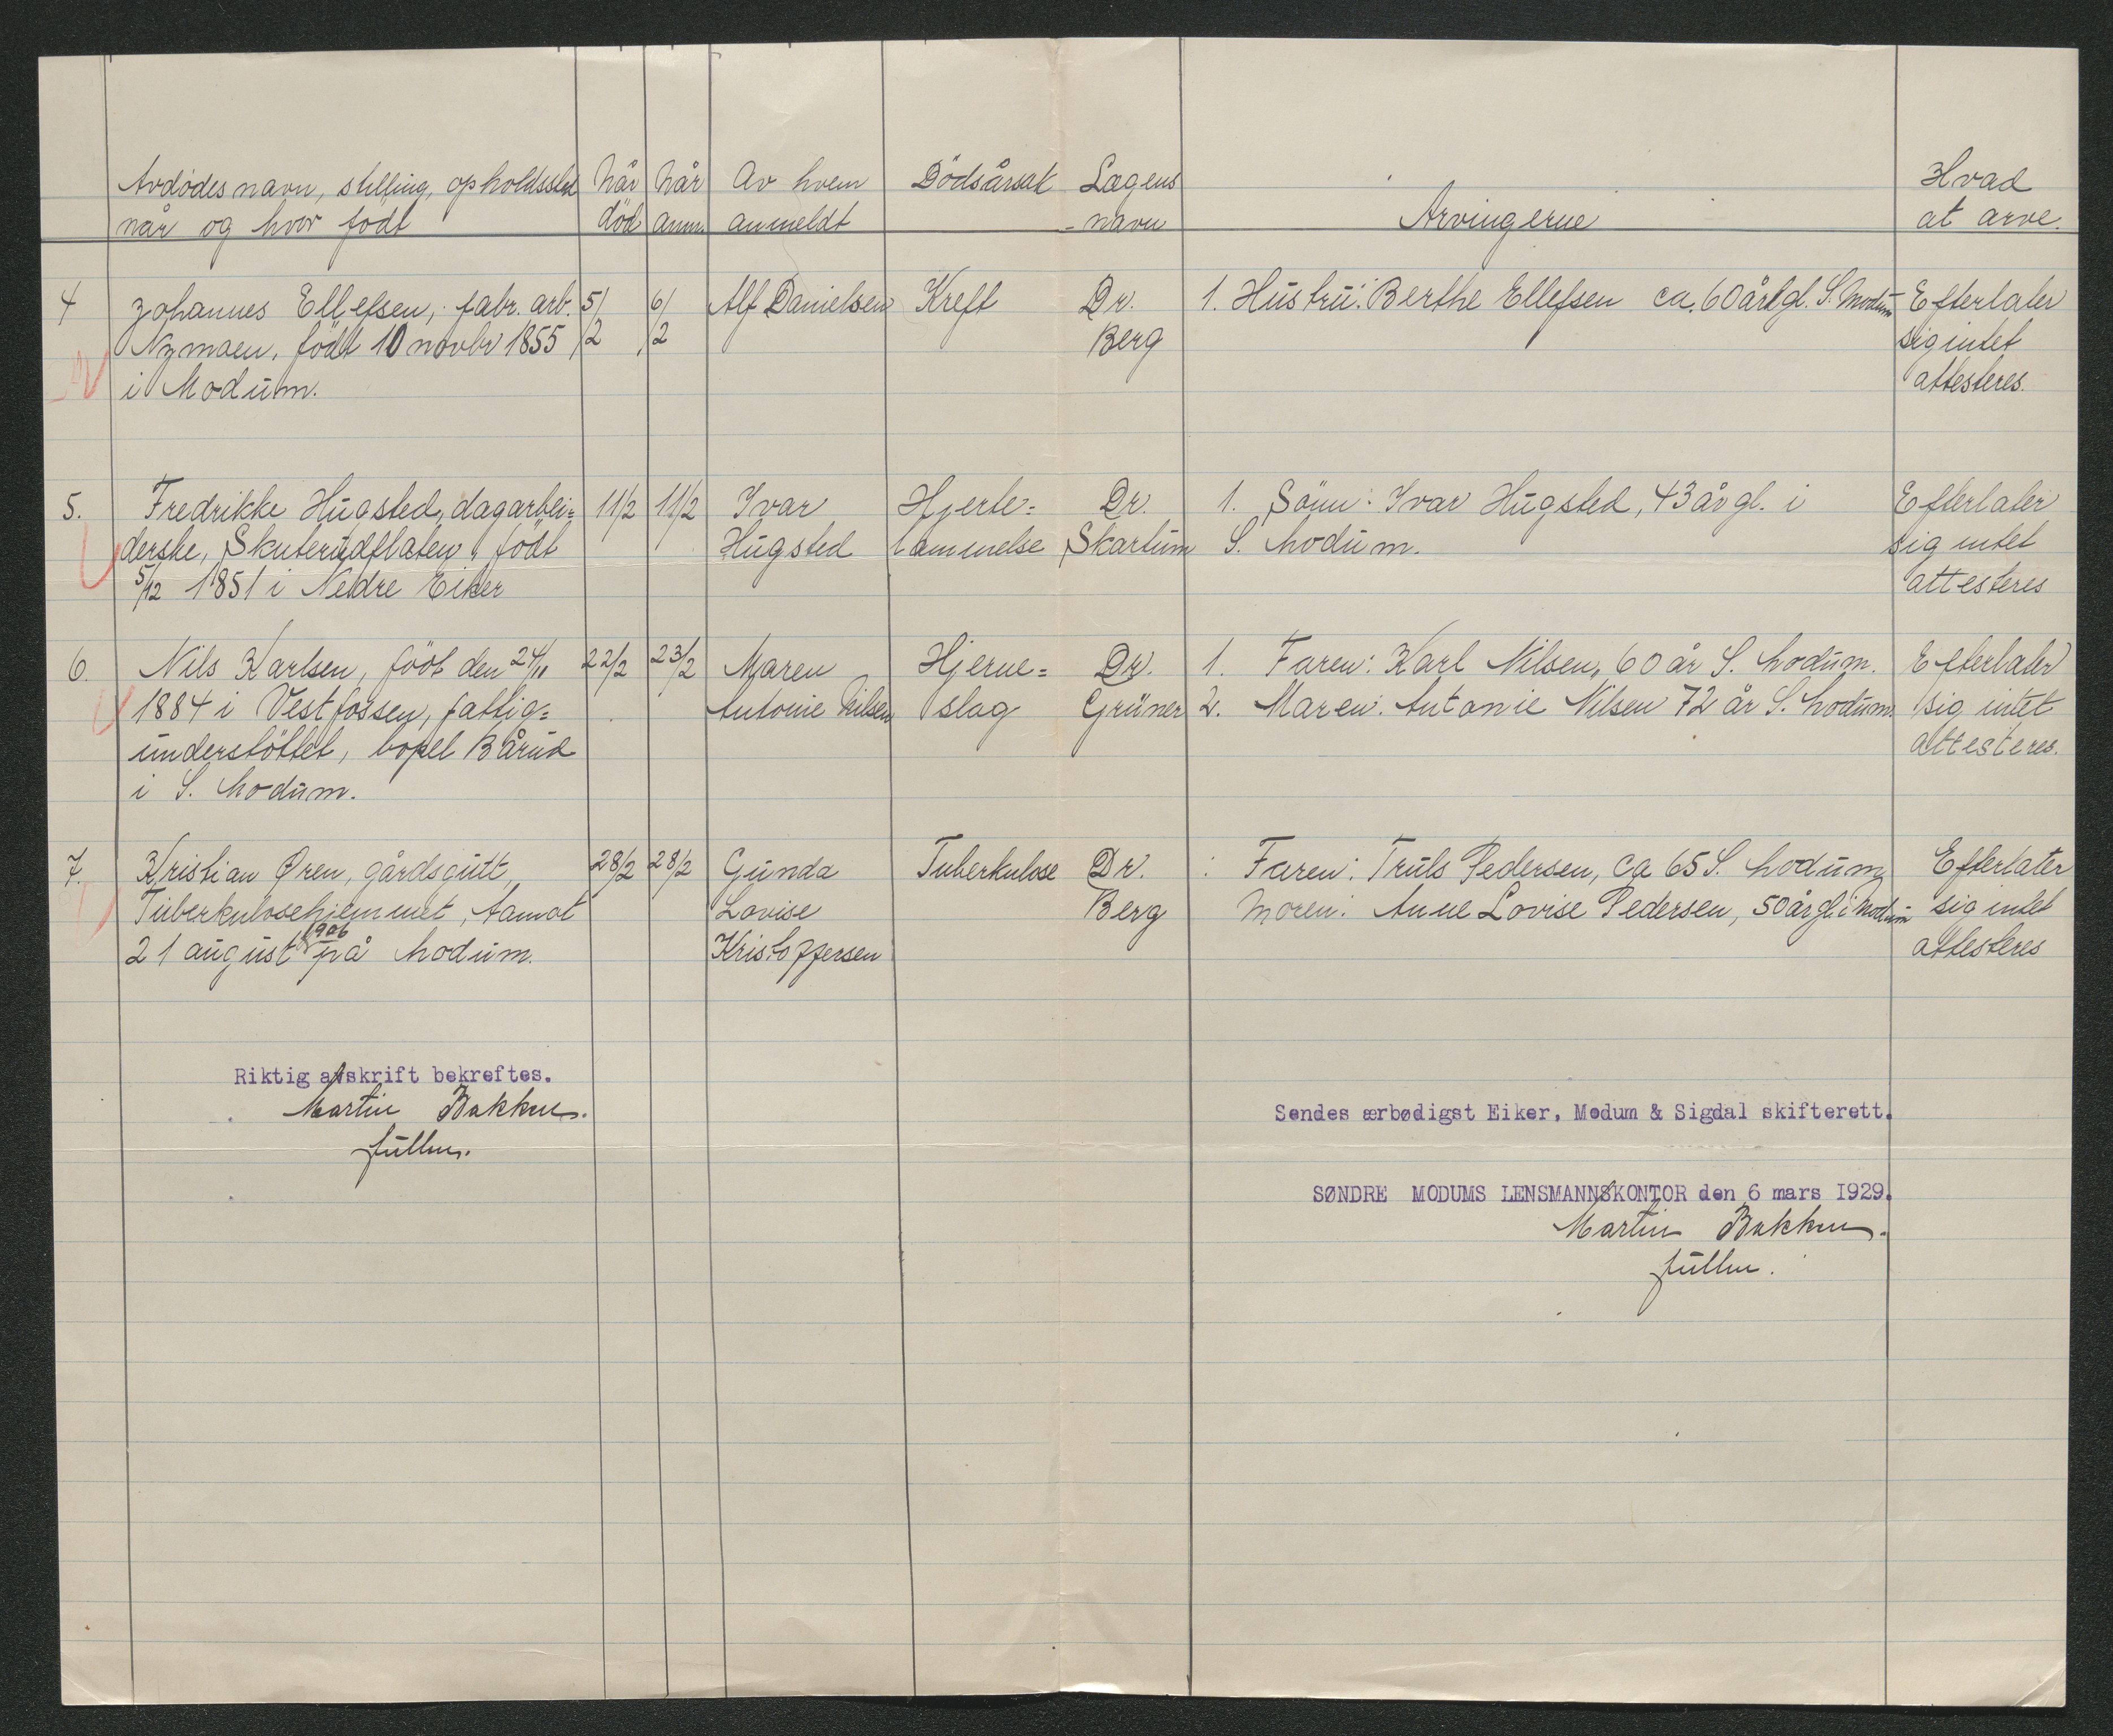 Avdødes navn, stilling, opholdssted
når og hvor født
Når
død
Når
anm.
Av hvem
anmeldt
Dödsårsak
Lægens
navn
Arvingerne
Hvad
at arve.
4
Johannes Ellefsen, fabr. arb.
Nymoen, født 10 novbr 1855
i Modum.
5/
2
6/
2
Alf Danielsen
Kreft
Dr.
Berg
1. Hustru: Berthe Ellefsen ca. 60 år gl. S. Modum
Efterlater
sig intet
attesteres.
5.
Fredrikke Hugsted, dagarbei=
derske, Skuterudflaten, født
5/12 1851 i Nedre Eiker
11/2
11/2
Ivar
Hugsted
Hjerte=
lammelse
Dr.
Skartum
1. Sönn: Ivar Hugsted, 43 år gl. i
S. Modum.
Efterlater
sig intet
attesteres
6.
Nils Karlsen, født den 24/11
1884 i Vestfossen, fattig=
understöttet, bopel Bårud
i S. Modum.
22/2
23/2
Maren
Antonie Nilsen
Hjerne=
slag
Dr.
Grüner
1. Faren: Karl Nilsen, 60 år S. Modum.
2. Maren: Antonie Nilsen 72 år S. Modum.
Efterlater
sig intet
attesteres.
7.
Kristian Øren, gårdsgutt,
Tuberkulosehjemmet, Aamot
21 august 1906 på Modum.
28/2
28/2
Gunda
Lovise
Kristoffersen
Tuberkulose
Dr.
Berg
: Faren: Truls Pedersen, ca 65 S. Modum
Moren: Anne Lovise Pedersen, 50 år gl. i Modum
Efterlater
sig intet
attesteres
Riktig avskrift bekreftes.
Martin Bakken.
fullm.
Sendes ærbødigst Eiker, Modum & Sigdal skifterett.
SØNDRE MODUMS LENSMANNSKONTOR den 6 mars 1929.
Martin Bakken.
fullm.